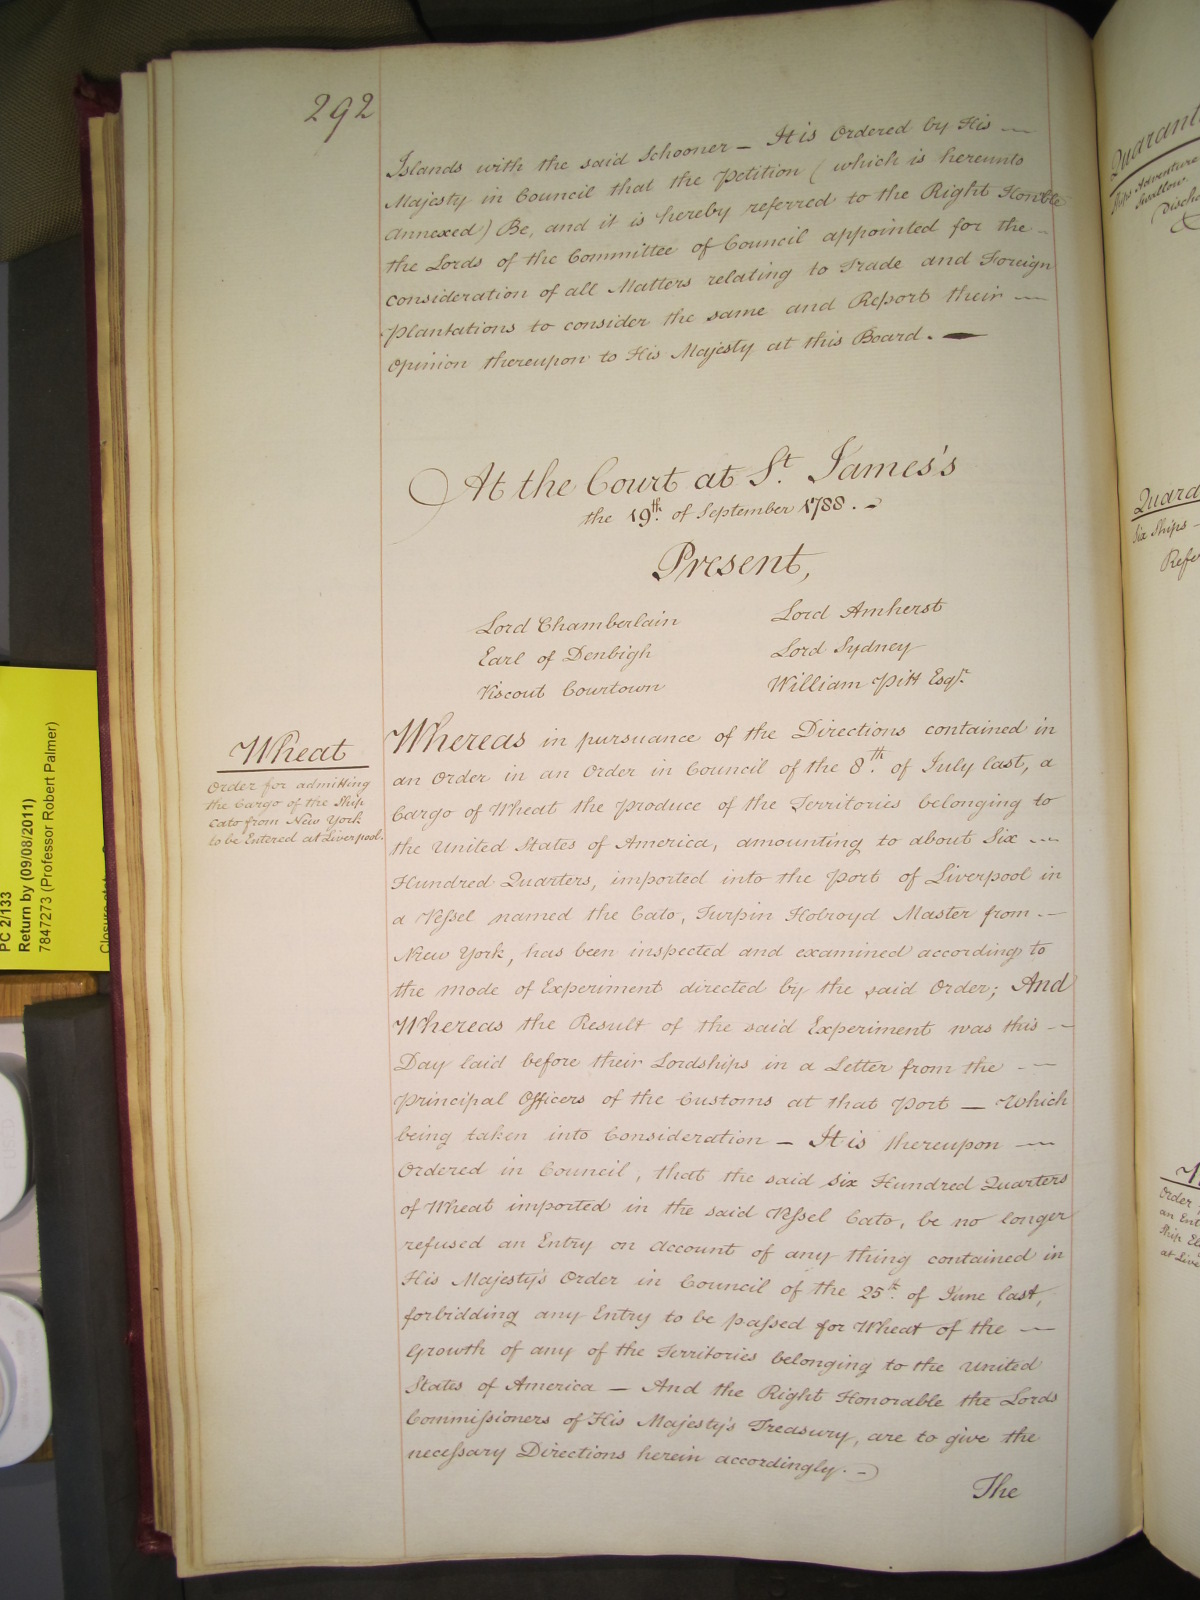 292
Islands with the said Schooner — It is Ordered by His —
Majesty in Council that the Petition (which is hereunto
annexed) Be, and it is hereby referred to the Right Honble
the Lords of the Committee of Council appointed for the —
consideration of all Matters relating to Trade and Foreign
Plantations to consider the same and Report their —
Opinion thereupon to His Majesty at this Board. —
At the Court at St. James's
the 19th. of September 1788. —
Present,
Lord Chamberlain
Earl of Denbigh
Viscout Courtown
Lord Amherst
Lord Sydney
William Pitt Esqr.
Wheat
Order for admitting
the Cargo of the Ship
Cato from New York
to be Entered at Liverpool.
Whereas in pursuance of the Directions contained in
an Order in an Order in Council of the 8th. of July last, a
Cargo of Wheat the produce of the Territories belonging to
the United States of America, amounting to about Six —
Hundred Quarters, imported into the Port of Liverpool in
a Vessel named the Cato, Turpin Holroyd Master from —
New York, has been inspected and examined according to
the mode of Experiment directed by the said Order; And
Whereas the Result of the said Experiment was this —
Day laid before their Lordships in a Letter from the —
Principal Officers of the Customs at that Port — Which
being taken into Consideration — It is thereupon —
Ordered in Council, that the said six Hundred Quarters
of Wheat imported in the said Vessel Cato, be no longer
refused an Entry on account of any thing contained in
His Majesty's Order in Council of the 25th. of June last,
forbidding any Entry to be passed for Wheat of the —
Growth of any of the Territories belonging to the United
States of America — And the Right Honorable the Lords
Commissioners of His Majesty's Treasury, are to give the
necessary Directions herein accordingly. —
The
PC 2/133
Return by (09/08/2011)
7847273 (Professor Robert Palmer)
Six Ships —
Order